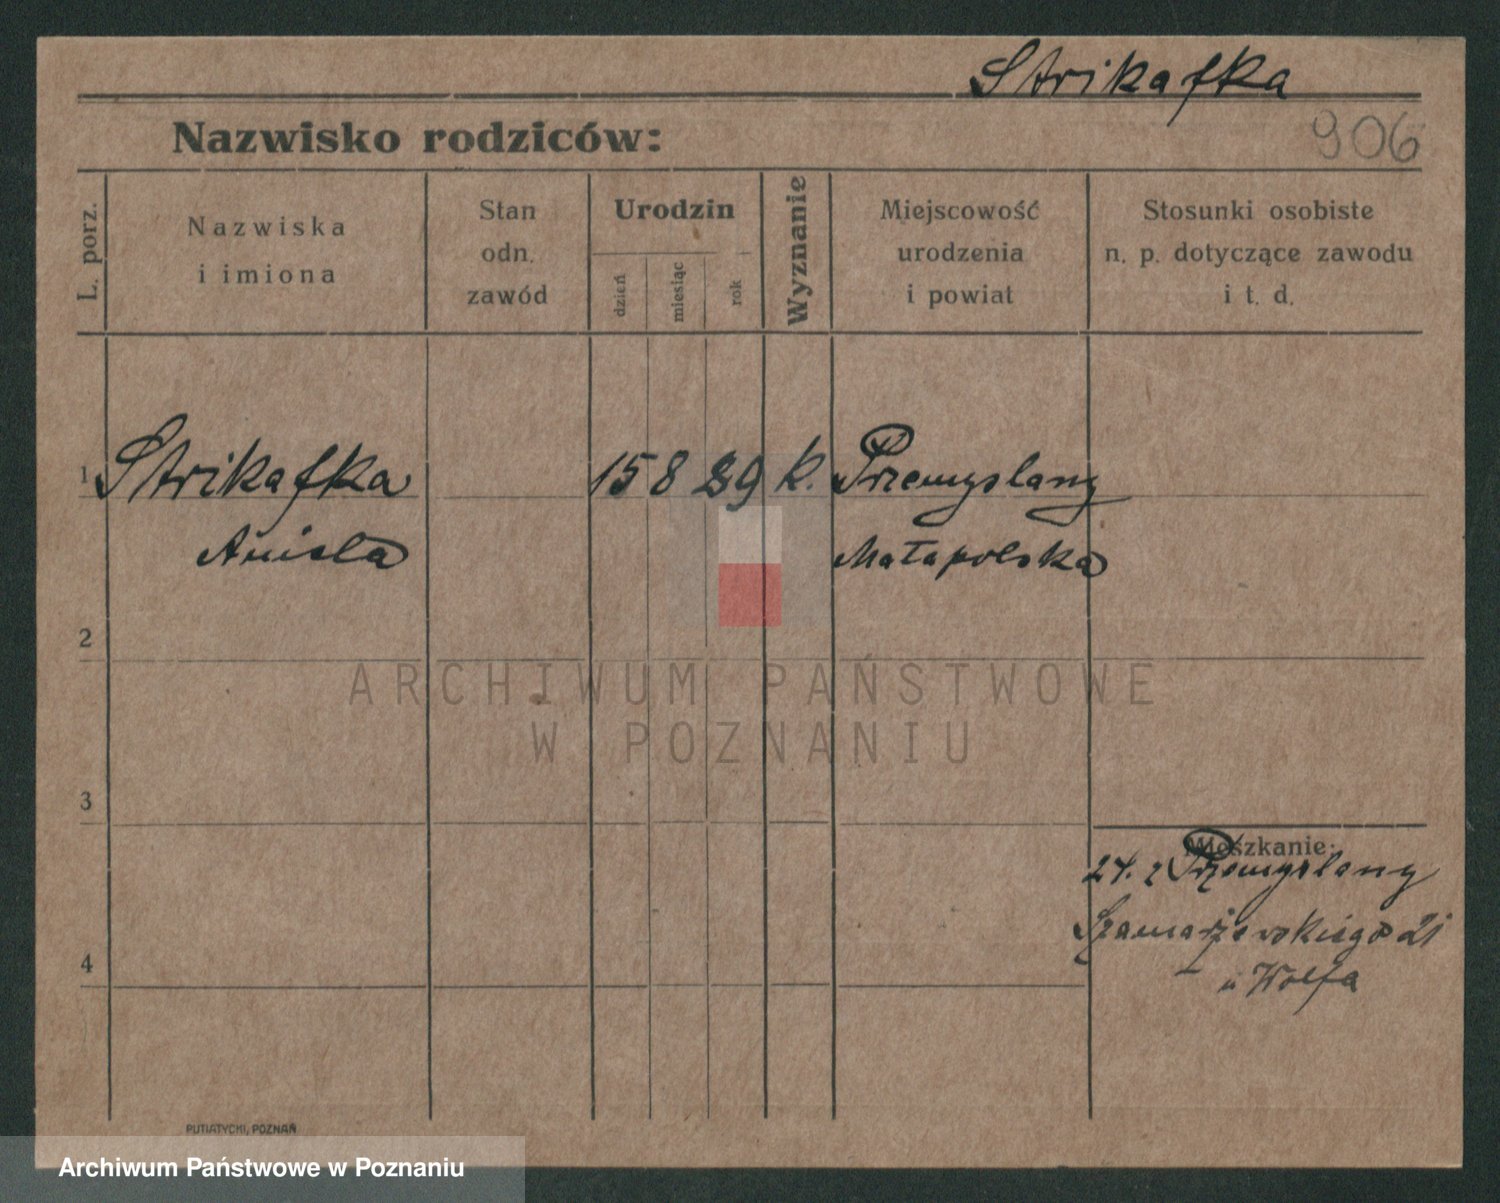 Strikafka
Nazwisko rodziców:
906
L. porz.
Nazwiska
i imiona
Stan
odn.
zawód
Urodzin
dzień
miesiąc
rok
Wyznanie
Miejscowość
urodzenia
i powiat
Stosunki osobiste
n. p. dotyczące zawodu
i t. d.
1 Strikafka 15 8 89 k. Przemyslany
Aniela Małapolska
2
3
4
Mieszkanie:
24. z Przemyslany
Szamarzewskiego 21
u Wolfa
PUTIATYCKI, POZNAŃ
ARCHIWUM PAŃSTWOWE
W POZNANIU
Archiwum Państwowe w Poznaniu